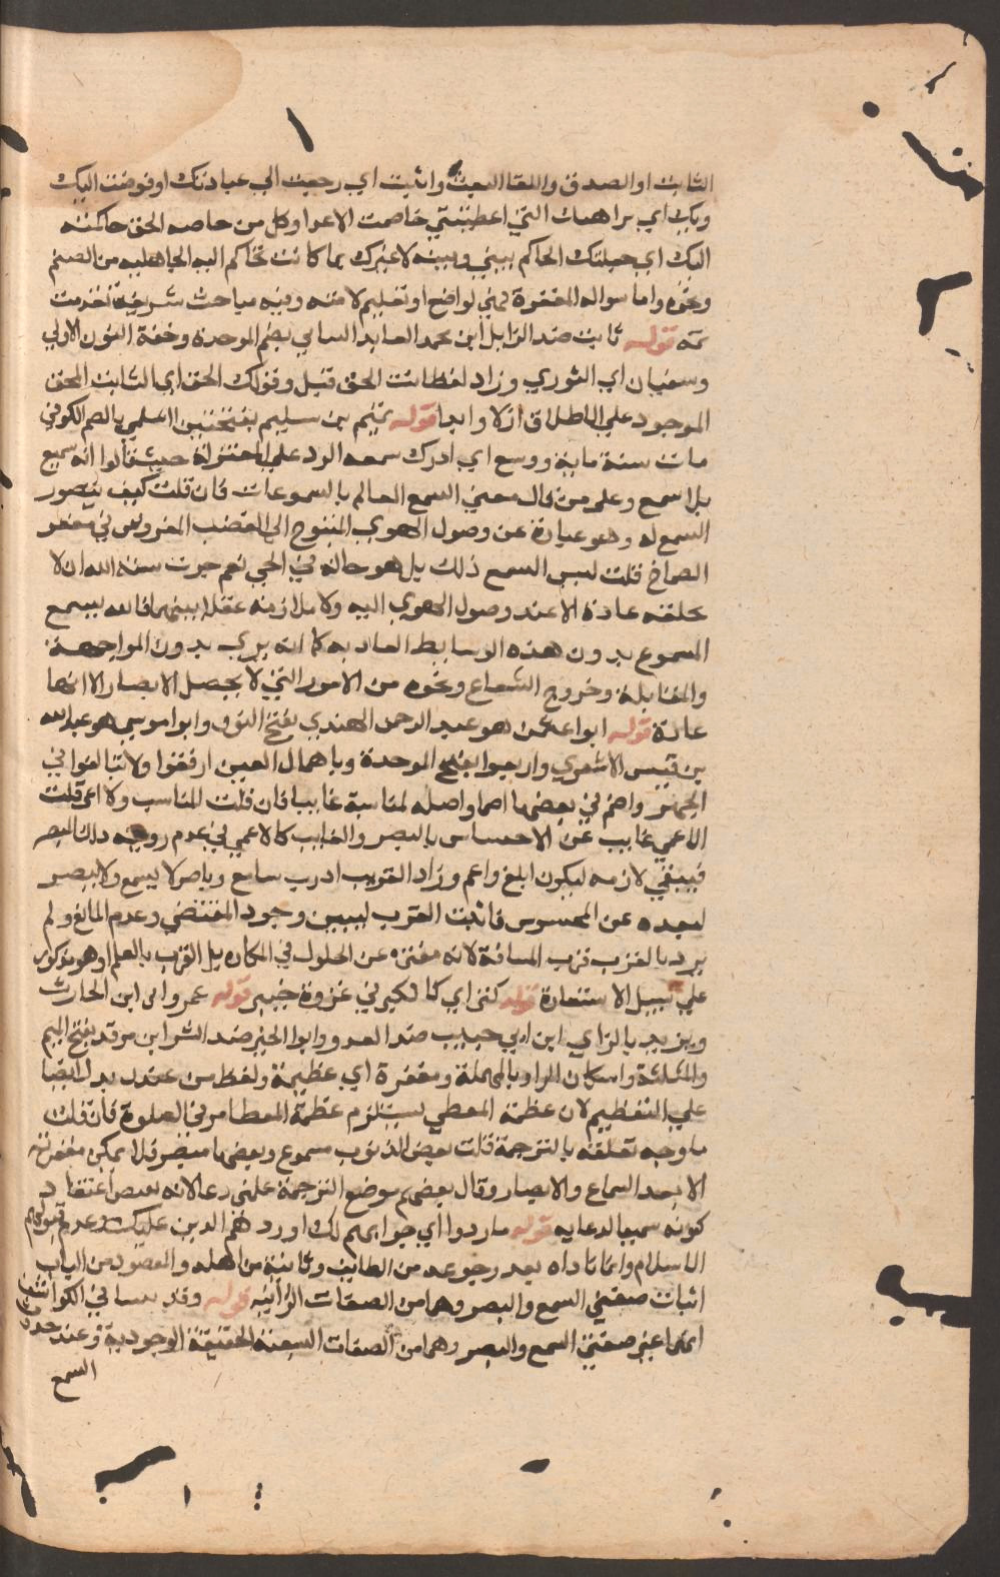 الثابت او الصدق واللقا البعث وانيت اي رجعت الى عبادتك او فوضت اليك
وبك اي براهينك التي اعطيتني خاصمت الاعدا وكل من خاصم الحق حاكمته
اليك اي جعلتك الحاكم بيني وبينه لا غيرك مما كانت تحاكم اليه الجاهليه من الصنم
ونحوه واما سواله المغفرة فهي لواضع او تعليم لامته وفيه مباحث شريفة تقدمت
ثمه قوله ثابت ضد الزايل ابن محمد العابد البناني بضم الموحدة وخفة النون الاولى
وسفيان اي الثوري وزاد لفظ انت الحق قبل وقولك الحق اي الثابت المحق
الموجود على الاطلاق ازلا وابدا قوله تميم بن سليم بفتحتين السلمي بالضم الكوفي
مات سنة ماية ووسع اي ادرك سمعه الرد على المعتزلة حيث قالوا انه سميع
بلا سمع وعلى من قال معنى السمع العالم بالمسموعات فان قلت كيف يتصور
السمع له وهو عبارة عن وصول الهوى المتموج الى العصب المفروش في مقعر
الصماخ قلت ليس السمع ذلك بل هو حالة في الحي نعم جرت سنة الله ان لا
يخلقه عادة الا عند وصول الهوى اليه ولا ملازمة عقلا بينهما فالله يسمع
المسموع بدون هذه الوسايط العاديه كما انه يرى بدون المواجهة
والمقابلة وخروج الشعاع ونحوه من الامور التي لا يحصل الابصار الا بها
عادة قوله ابوا عثمن هو عبد الرحمن الهندي بفتح النون وابوا موسى هو عبد الله
بن قيس الاشعري واربعوا بفتح الموحدة وباهمال العين ارفقوا ولا تبالغوا في
الجهر واصم في بعضها اصما واصله لمناسبة غايبا فان قلت المناسب ولا اعمى قلت
الاعمى غايب عن الاحساس بالبصر والغايب كالاعمى في عدم رويته ذلك البصر
فينفي لازمه ليكون ابلغ واعم وزاد القريب اذ رب سامع وباصر لا يسمع ولا يبصر
لبعده عن المحسوس فاثبت القرب ليبين وجود المقتضي وعدم المانع ولم
يرد بالقرب قرب المسافة لانه منزه عن الحلول في المكان بل القرب بالعلم او هو مذكور
على سبيل الاستعارة قوله كنز اي كالكنز في غزوة خيبر قوله عمروا بن الحارث
ويزيد بالزاي ابن ابي حبيب ضد العدو وابوا الخير ضد الشر ابن مرثد بفتح الميم
والمثلثة واسكان الرا وبالمهملة ومغفرة اي عظيمة ولفظ من عندك يدل ايضا
على التعظيم لان عظمة المعطي يستلزم عظمة المعطا مر في الصلوة فان قلت
ما وجه تعلقه بالترجمة قلت بعض الذنوب مسموع وبعضها مبصر فلا يمكن مغفرته
الا بعد السماع والابصار وقال بعضهم موضع الترجمة علمني دعا لانه يعتقد
كونه سميعا لدعايه قوله ما ردوا اي جوابهم لك او ردهم الدين عليك وعدم قبولهم
الاسلام وانما ناداه بعد رجوعه من الطايف وتابيه من اهله والمقصود من الباب
اثبات صفتي السمع والبصر وهما من الصفات الذاتيه قوله
انهما اعني صفتي السمع والبصر وهما من الصفات السبعة الحقيقة الوجودية وعند حدوث
السمع